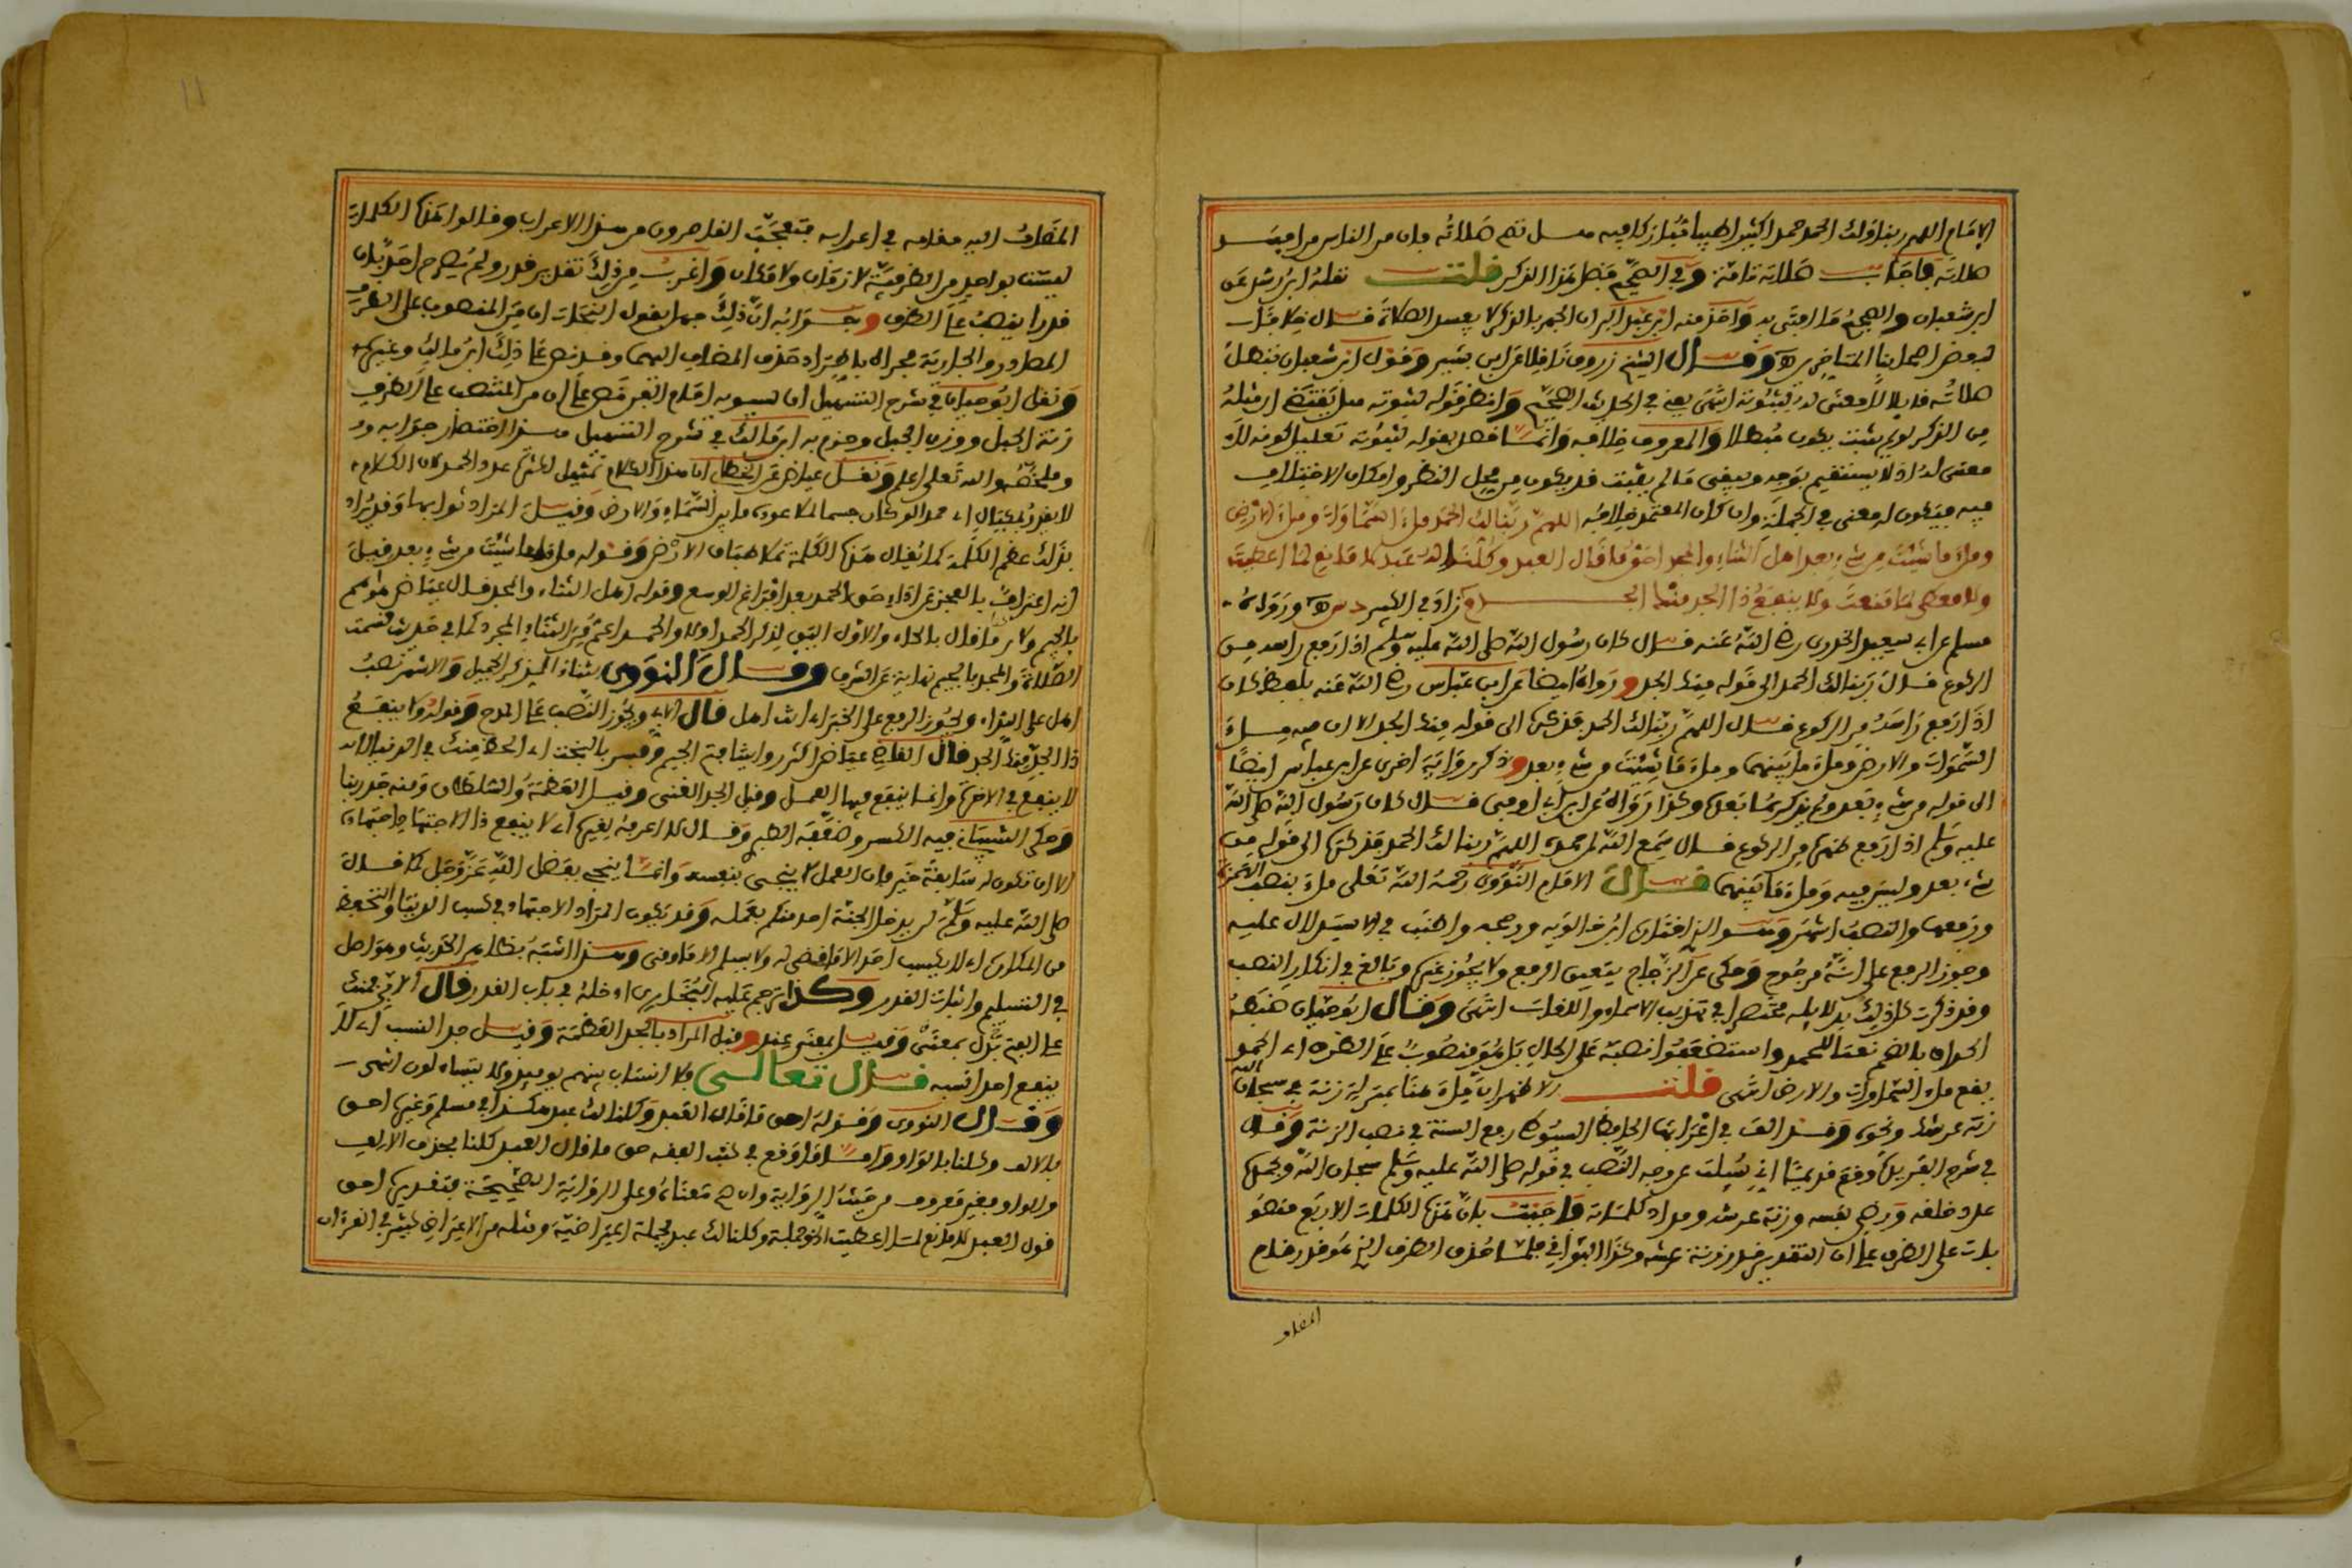 الامام اللهم ربنا ولك الحمد حمدا كثيرا طيبا مباركا فيه هل تصح صلاته فان من الناس من افسد
صلاته فاجاب صلاته تامة وفي الصحيح فضل هذا الذكر قلت نقله ابن رشد عن
ابن شعبان والصحيح ما افتى به واخذ منه ابن عبد البر ان الجهر بالذكر لا يفسد الصلاة قال خلافا
لبعض اصحابنا المتاخرين اه وقال الشيخ زروق ناقلا عن ابن بشير وقول ابن شعبان بتبطل
صلاته قايلا لا معنى له لثبوته انتهى يعني في الحديث الصحيح وانظر قوله لثبوته هل يقتضي ان مثله
من الذكر لو لم يثبت يكون مبطلا والمعروف خلافه وانما فصل بقوله لثبوته تعليل كونه لا
معنى له اذ لا يستقيم توجيه ويبقى ما لم يثبت قد يكون من محل النظر وامكان الاختلاف
فيه فيكون له معنى في الجملة وان كان المعتمد خلافه اللهم ربنا لك الحمد ملء السماوات وملء الارض
وملء ما شئت من شيء بعد اهل الثناء والمجد احق ما قال العبد وكلنا لك عبد لا مانع لما اعطيت
ولا معطي لما منعت ولا ينفع ذا الجد منك الجد زاد في الكبير ورواه
مسلم عن ابي سعيد الخدري رضي الله عنه قال كان رسول الله صلى الله عليه وسلم اذا رفع راسه من
الركوع قال ربنا لك الحمد الى قوله منك الجد ورواه ايضا عن ابن عباس رضي الله عنه بلفظ كان
اذا رفع راسه من الركوع قال اللهم ربنا لك الحمد فذكره الى قوله منك الجد الا ان فيه ملء
السموات والارض وملء ما بينهما وملء ما شئت من شيء بعد وذكر رواية اخرى عن ابن عباس ايضا
الى قوله من شيء بعد ولم يذكر ما بعده وكذا رواه عن ابن ابي اوفى قال كان رسول الله صلى الله
عليه وسلم اذا رفع ظهره من الركوع قال سمع الله لمن حمده اللهم ربنا لك الحمد فذكرها الى قوله من
شيء بعد وليس فيه وملء ما بينهما قال الامام النووي رحمه الله تعالى ملء بنصب الهمزة
ورفعها والنصب اشهر وهو الذي اختاره ابن خالويه ورجحه واطنب في الاستدلال عليه
وجوز الرفع على انه مرجوح وحكى عن الزجاج يتعين الرفع ولا يجوز غيره وبالغ في انكار النصب
وقد ذكرت كل ذلك بدلايله مختصرا في تهذيب الاسماء واللغات انتهى وقال ابو حيان ضبطه
الحذاق بالضم نعتا للحمد واستضعفوا نصبه على الحال بل هو منصوب على الظرف اي الحمد
يقع ملء السماوات والارض انتهى قلت الاظهر ان ملء هنا بمنزلة زنة في سبحان الله
زنة عرشه ونحوه وقد الف في اعرابها الحافظ السيوطي رفع السنة في نصب الزنة وقال
في شرح القريب وقع قديما اني سيلت عن وجه النصب في قوله صلى الله عليه وسلم سبحان الله وبحمده
عدد خلقه ورضى نفسه وزنة عرشه ومداد كلماته واجبت بان هذه الكلمات الاربع منصو
بات على الظرف على ان التقدير قدر زنة عرشه وكذا البواقي فلما حذف الظرف الذي هو قدر قام
المضاف
المضاف اليه مقامه في اعرابه فتعجب القاصرون من هذا الاعراب وقالوا هذه الكلمات
ليست بواحد من الظرفية لا زمان ولا مكان واغرب من ذلك تقدير قدر ولم يصرح احد بان
قدرا ينصب على الظرف وجوابه ان ذلك جهل بقول النحاة ان من المنصوب على الظرف
المصادر والجارية مجراه باطراد حذف المضاف اليها وقد نص على ذلك ابن مالك وغيره
ونقل ابو حيان في شرح التسهيل ان سيبويه امام الفن نص على ان من المنتصب على الظرف
زنة الجبل ووزن الجبل وجزم به ابن مالك في شرح التسهيل هذا اختصار جوابه
وملخصه والله تعالى اعلم ونقل عياض عن الخطابي ان هذا الكلام تمثيل لكثرة عدد الحمد لان الكلام
لا يقدر بمكيال اي حمدا لو كان جسما لملا عوده ما بين السماء والارض وقيل المراد ثوابها وقد يراد
بذلك عظم الكلمة كما يقال هذه الكلمة تملا طباق الارض وقوله ملء ما شئت من شيء بعد قيل
انه اعترف بالعجز عن اداء حق الحمد بعد افراغ الوسع وقوله اهل الثناء والمجد قال عياض هو اسم
بالجيم ولا بن ماهان بالحاء والاول اليق لذكر الحمد اولا والحمد اعم من الثناء والمجد كما في حديث قسمت
الصلاة والمجد بالجيم نهاية عن الشرف وقال النووي الثناء الذكر الجميل والاشهر نصب
اهل على النداء ويجوز الرفع على الخبر اي انت اهل قال الابي ويجوز النصب على المدح وقوله ولا ينفع
ذا الجد منك الجد قال القاضي عياض اكثر روايتنا فتح الجيم وفسر بالبخت اي الحظ منك في الدنيا انه
لا ينفع في الاخرة وانما ينفع فيها العمل وقيل الجد الغنى وقيل العظمة والسلطان ومنه جد ربنا
وحكى الشيباني فيه الكسر وضعفه الطبري وقال لا اعرفه لغيره اي لا ينفع ذا الاجتهاد اجتهاده
الا ان تكون له سابقة خير فان العمل لا ينجي بنفسه وانما ينجي بفضل الله عز وجل كما قال
صلى الله عليه وسلم لن يدخل الجنة احد منكم بعمله وقد يكون المراد الاجتهاد في كسب الدنيا والتحفظ
من المكاره اي لا يكسب احد الا ما قضي له ولا يسلم الا ما وقي وهذا اشبه بظاهر الحديث وهو اصل
في التسليم واثبات القدر وكذا ترجم عليه البخاري ادخله في باب القدر قال الابي فمنك
على الفتح بدل بمعنى وقيل بمعنى عند وقيل المراد بالجد العظمة وقيل جد النسب اي لا
ينفع احدا نسبه قال تعالى فلا انساب بينهم يوميذ ولا يتساءلون انتهى
وقال النووي وقوله احق ما قال العبد وكلنا لك عبد هكذا في مسلم وغيره احق
بالالف وكلنا بالواو واما ما وقع في كتب الفقه حق ما قال العبد كلنا بحذف الالف
والواو فغير معروف من حيث الرواية وان صح معناه وعلى الرواية الصحيحة فتقديره احق
قول العبد لا مانع لما اعطيت الخ وجملة وكلنا لك عبد جملة اعتراضية ومثله من الاعتراض كثير في القرءان